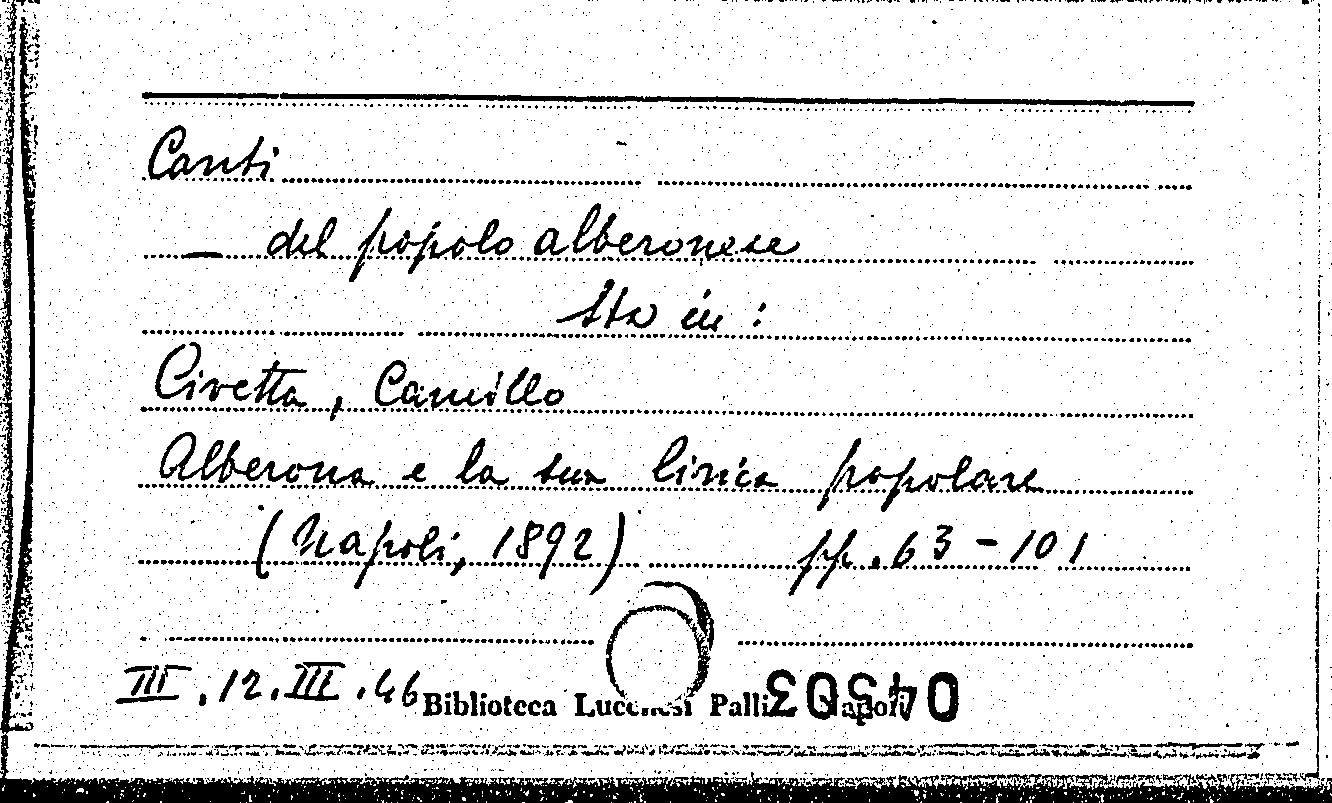 Canti
— del popolo alberonese
Sta in :
Civetta, Camillo
Alberona e la sua lirica popolare
(Napoli, 1892) pp. 63-101
III. 12. III. 46
Biblioteca Lucchesi Palli Napoli